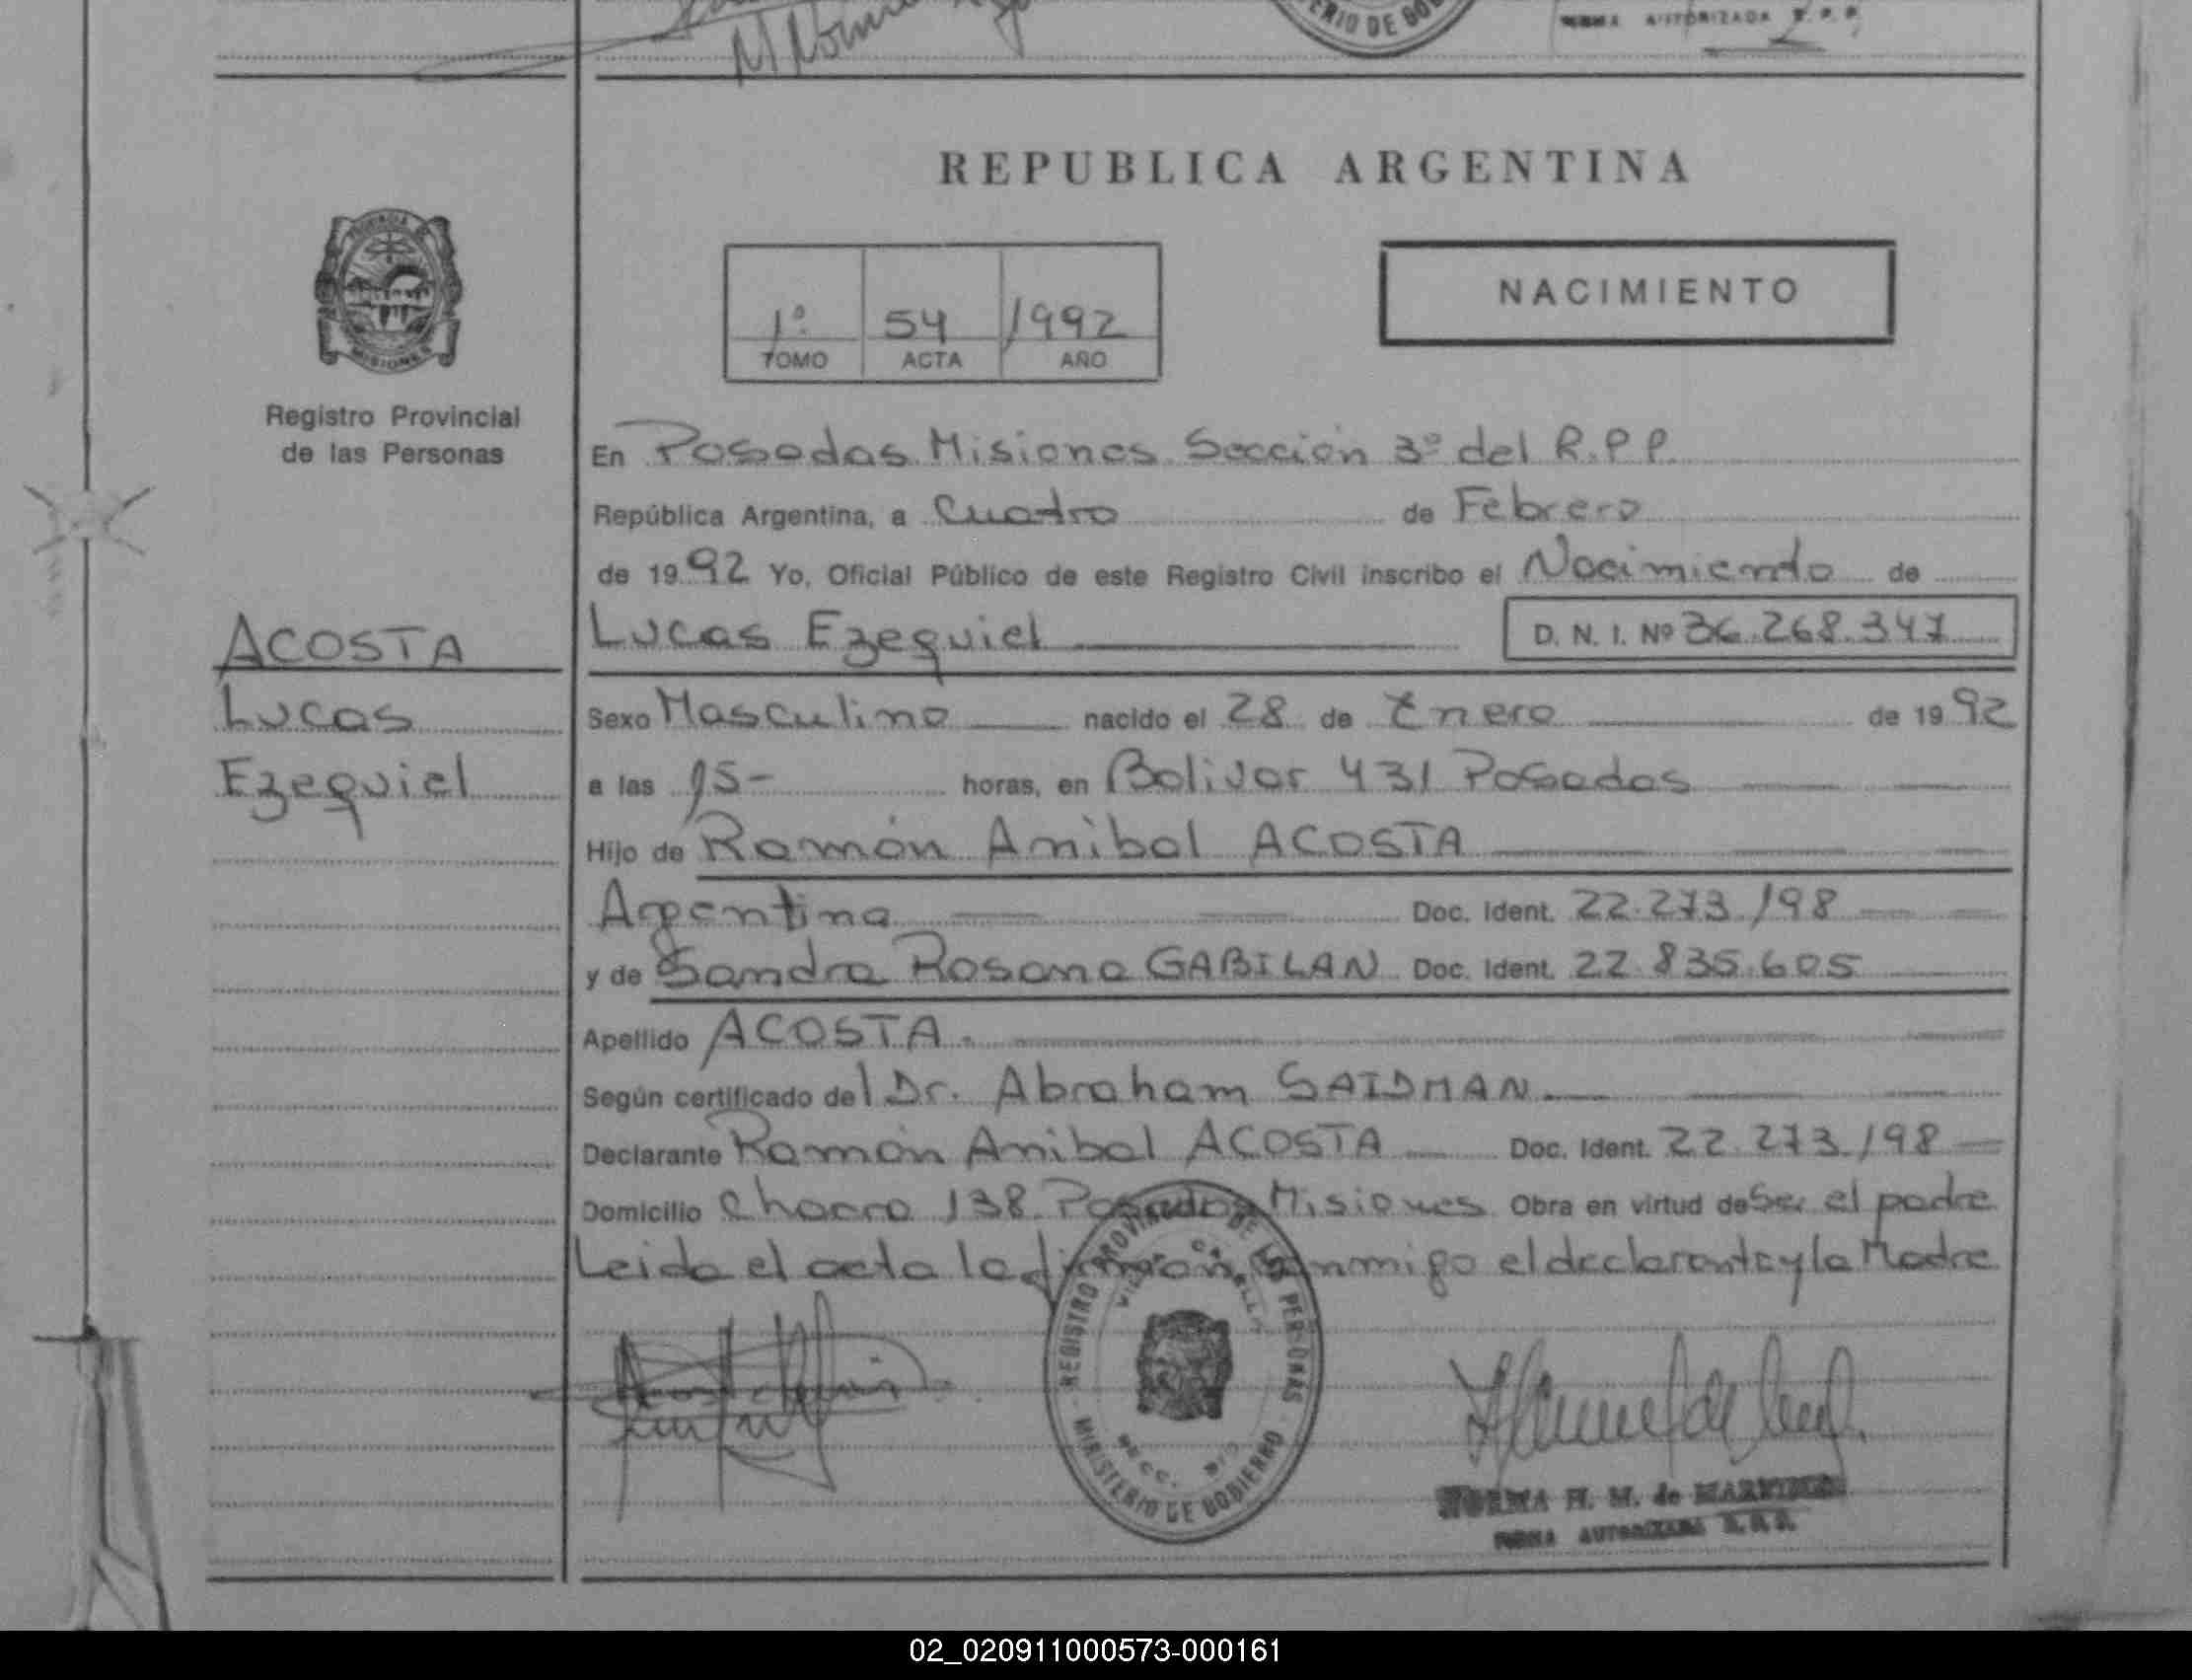 MINISTERIO DE GOB
FIRMA AUTORIZADA R.P.P.
PROVINCIA DE
MISIONES
Registro Provincial
de las Personas
ACOSTA
Lucas
Ezequiel
REPUBLICA ARGENTINA
1º 54 1992
TOMO ACTA AÑO
NACIMIENTO
En Posadas Misiones Sección 3º del R.P.P.
República Argentina, a Cuatro de Febrero
de 1992 Yo, Oficial Público de este Registro Civil inscribo el Nacimiento de
Lucas Ezequiel D. N. I. Nº 36.268.347
Sexo Masculino nacido el 28 de Enero de 1992
a las 15- horas, en Bolivar 431 Posadas
Hijo de Ramón Anibal ACOSTA
Argentina Doc. Ident. 22.273.198
y de Sandra Rosana GABILAN Doc. Ident. 22.835.605
Apellido ACOSTA.
Según certificado del Dr. Abraham SAIDMAN
Declarante Ramón Anibal ACOSTA Doc. Ident. 22.273.198
Domicilio Chacra 138 Posadas Misiones Obra en virtud de Ser el padre
Leida el acta la firman conmigo el declarante y la Madre
REGISTRO PROVINCIAL DE LAS PERSONAS
MINISTERIO DE GOBIERNO
NORMA H. M. de
FIRMA AUTORIZADA R.P.P.
02_020911000573-000161